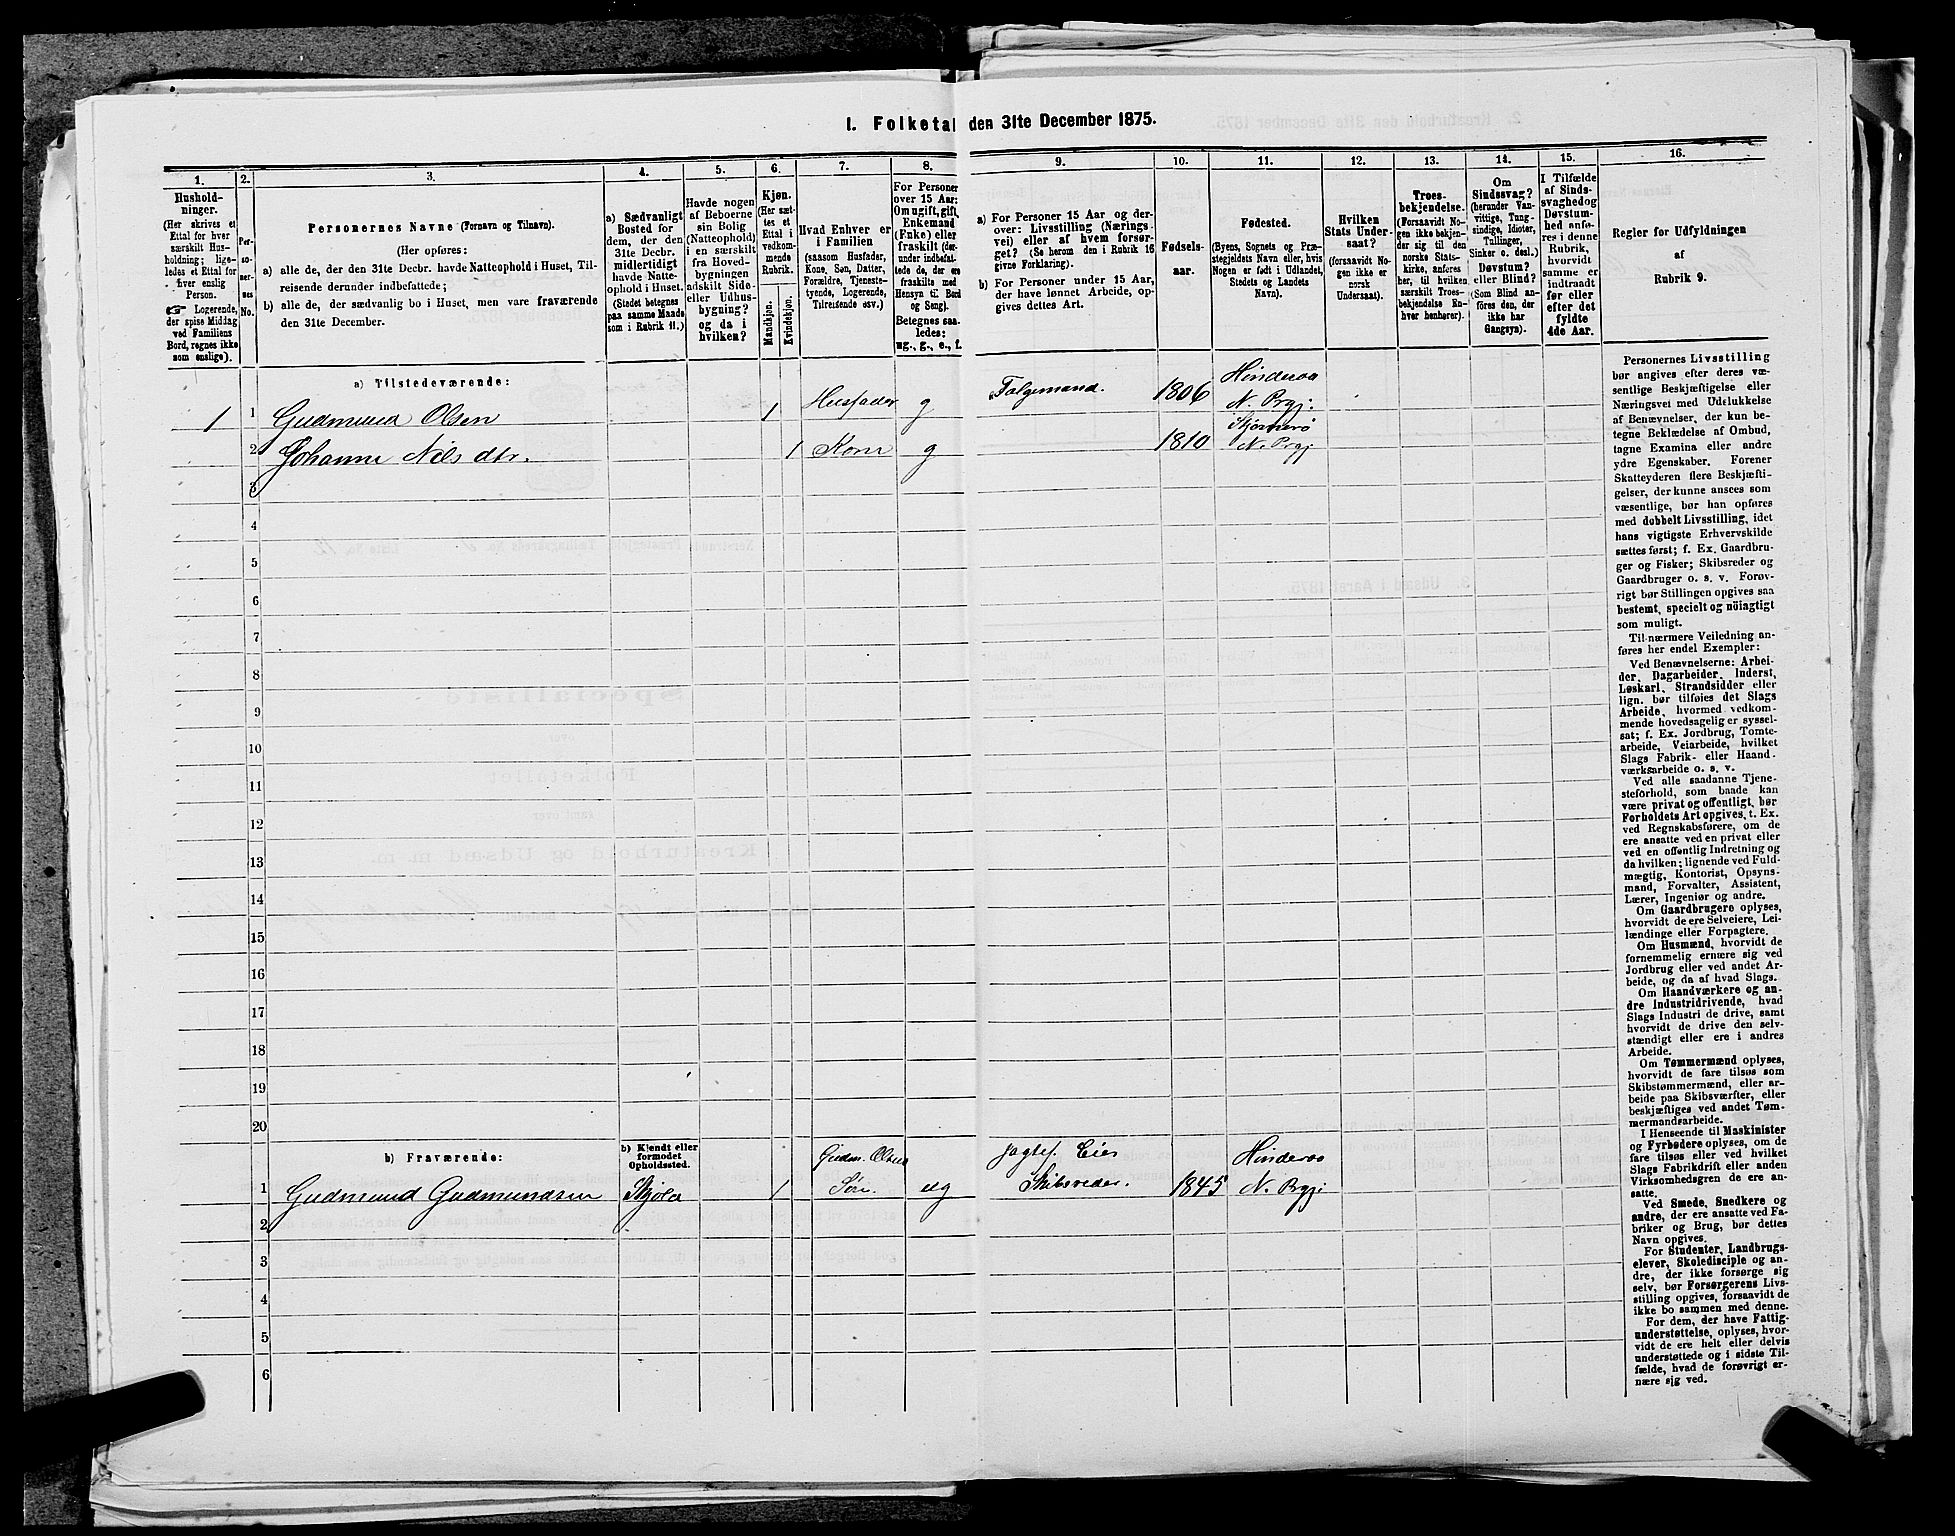 1. Folketal den 31te December 1875.
1.
2.
3.
4.
5.
6.
7.
8.
9.
10.
11.
12.
13.
14.
15.
16.
Hushold-
ninger.
(Her skrives et
Ettal for hver
særskilt Hus-
holdning; lige-
ledes et Ettal for
hver enslig
Person.
☞ Logerende,
der spise Middag
ved Familiens
Bord, regnes ikke
som enslige).
Per-
so-
ner-
nes
No.
Personernes Navne (Fornavn og Tilnavn).
(Her opføres:
a) alle de, der den 31te Decbr. havde Natteophold i Huset, Til-
reisende derunder indbefattede;
b) alle de, der sædvanlig bo i Huset, men vare fraværende
den 31te December.
a) Sædvanligt
Bosted for
dem, der den
31te Decbr.
midlertidigt
havde Natte-
ophold i Huset.
(Stedet betegnes
paa samme Maade
som i Rubrik 11.)
Havde nogen
af Beboerne
sin Bolig
(Natteophold)
i en særskilt
fra Hoved-
bygningen
adskilt Side-
eller Udhus-
bygning?
og da i
hvilken?
Kjøn.
(Her sæt-
tes et
Ettal i
vedkom-
mende
Rubrik.
Mandkjøn.
Kvindekjøn.
Hvad Enhver er
i Familien
(saasom Husfader,
Kone, Søn, Datter,
Forældre, Tjeneste-
tyende, Logerende,
Tilreisende osv.)
For Personer
over 15 Aar:
Om ugift, gift,
Enkemand
(Enke) eller
fraskilt (der-
under indbefat-
tede de, der ere
fraskilte med
Hensyn til Bord
og Seng).
Betegnes saa-
ledes:
ug., g., e., f.
a) For Personer 15 Aar og der-
over: Livsstilling (Nærings-
vei) eller af hvem forsør-
get? (Se herom den i Rubrik 16
givne Forklaring).
b) For Personer under 15 Aar,
der have lønnet Arbeide, op-
gives dettes Art.
Fødsels-
aar.
Fødested.
(Byens, Sognets og Præ-
stegjeldets Navn eller, hvis
Nogen er født i Udlandet,
Stedets og Landets
Navn).
Hvilken
Stats Under-
saat?
(forsaavidt No-
gen ikke er
norsk
Undersaat).
Troes-
bekjendelse.
(Forsaavidt No-
gen ikke bekjen-
der sig til den
norske Stats-
kirke, anføres
her, til hvilken
særskilt Troes-
bekjendelse En-
hver henhører).
Om
Sindssvag?
(herunder Van-
vittige, Tung-
sindige, Idioter,
Tullinger,
Sinker o. desl.)
Døvstum?
eller Blind?
(Som Blind an-
føres den, der
ikke har
Gangsyn).
I Tilfælde
af Sinds-
svaghed og
Døvstum-
hed anfø-
res i denne
Rubrik,
hvorvidt
samme er
indtraadt
før eller
efter det
fyldte
4de Aar.
Regler for Udfyldningen
af
Rubrik 9.
a) Tilstedeværende:
1 1 Gudmund Olsen 1 Husfader g Folgemand. 1806 Hinderaa
N. Prgj:
2 Johanne Nilsdtr. 1 Kone g 1810
N. Prgj
3
4
5
6
7
8
9
10
11
12
13
14
15
16
17
18
19
20
b) Fraværende:
b) Kjendt eller
formodet
Opholdssted.
1 Gudmund Gudmundsen 1 Gudm. Olsens
Søn. ug Jagtef. Eier
Skibsreder. 1845 Hinderaa
N. Prgj:
2
3
4
5
6
Personernes Livsstilling
bør angives efter deres væ-
sentlige Beskjæftigelse eller
Næringsvei med Udelukkelse
af Benævnelser, der kun be-
tegne Beklædelse af Ombud,
tagne Examina eller andre
ydre Egenskaber. Forener
Skatteyderen flere Beskjæfti-
gelser, der kunne ansees som
væsentlige, bør han opføres
med dobbelt Livsstilling, idet
hans vigtigste Erhvervskilde
sættes først; f. Ex. Gaardbru-
ger og Fisker; Skibsreder og
Gaardbruger o. s. v. Forøv-
rigt bør Stillingen opgives saa
bestemt, specielt og nöiagtigt
som muligt.
Til nærmere Veiledning an-
føres her endel Exempler:
Ved Benævnelserne: Arbei-
der, Dagarbeider, Inderst,
Løskarl, Strandsidder eller
lign. bør tilføies det Slags
Arbeide, hvormed vedkom-
mende hovedsagelig er syssel-
sat; f. Ex. Jordbrug, Tomte-
arbeide, Veiarbeide, hvilket
Slags Fabrik- eller Haand-
værksarbeide o. s. v.
Ved alle saadanne Tjene-
steforhold, som baade kan
være privat og offentligt, bør
Forholdets Art opgives, t. Ex.
ved Regnskabsførere, om de
ere ansatte ved en privat eller
ved en offentlig Indretning og
da hvilken; lignende ved Fuld-
mægtig, Kontorist, Opsyns-
mand, Forvalter, Assistent,
Lærer, Ingeniør og andre.
Om Gaardbrugere oplyses,
hvorvidt de ere Selveiere, Lei-
lændinge eller Forpagtere.
Om Husmænd, hvorvidt de
fornemmelig ernære sig ved
Jordbrug eller ved andet Ar-
beide, og da af hvad Slags.
Om Haandværkere og an-
dre Industridrivende, hvad
Slags Industri de drive, samt
hvorvidt de drive den selv-
stændigt eller ere i andres
Arbeide.
Om Tømmermænd oplyses,
hvorvidt de fare tilsøs som
Skibstømmermænd, eller ar-
beide paa Skibsværfter, eller
beskjæftiges ved andet Tøm-
mermandsarbeide.
I Henseende til Maskinister
og Fyrbødere oplyses, om de
fare tilsøs eller ved hvilket
Slags Fabrikdrift eller anden
Virksomhedsgren de ere an-
satte.
Ved Smede, Snedkere og
andre, der ere ansatte ved Fa-
briker og Brug, bør dettes
Navn opgives.
For Studenter, Landbrugs-
elever, Skoledisciple og an-
dre, der ikke forsørge sig
selv, bør Forsørgerens Livs-
stilling opgives, forsaavidt de
ikke bo sammen med denne.
For dem, der have Fattig-
understøttelse, oplyses, hvor-
vidt de ere helt eller delvis
understøttede og i sidste Til-
fælde, hvad de forøvrigt er-
nære sig ved.